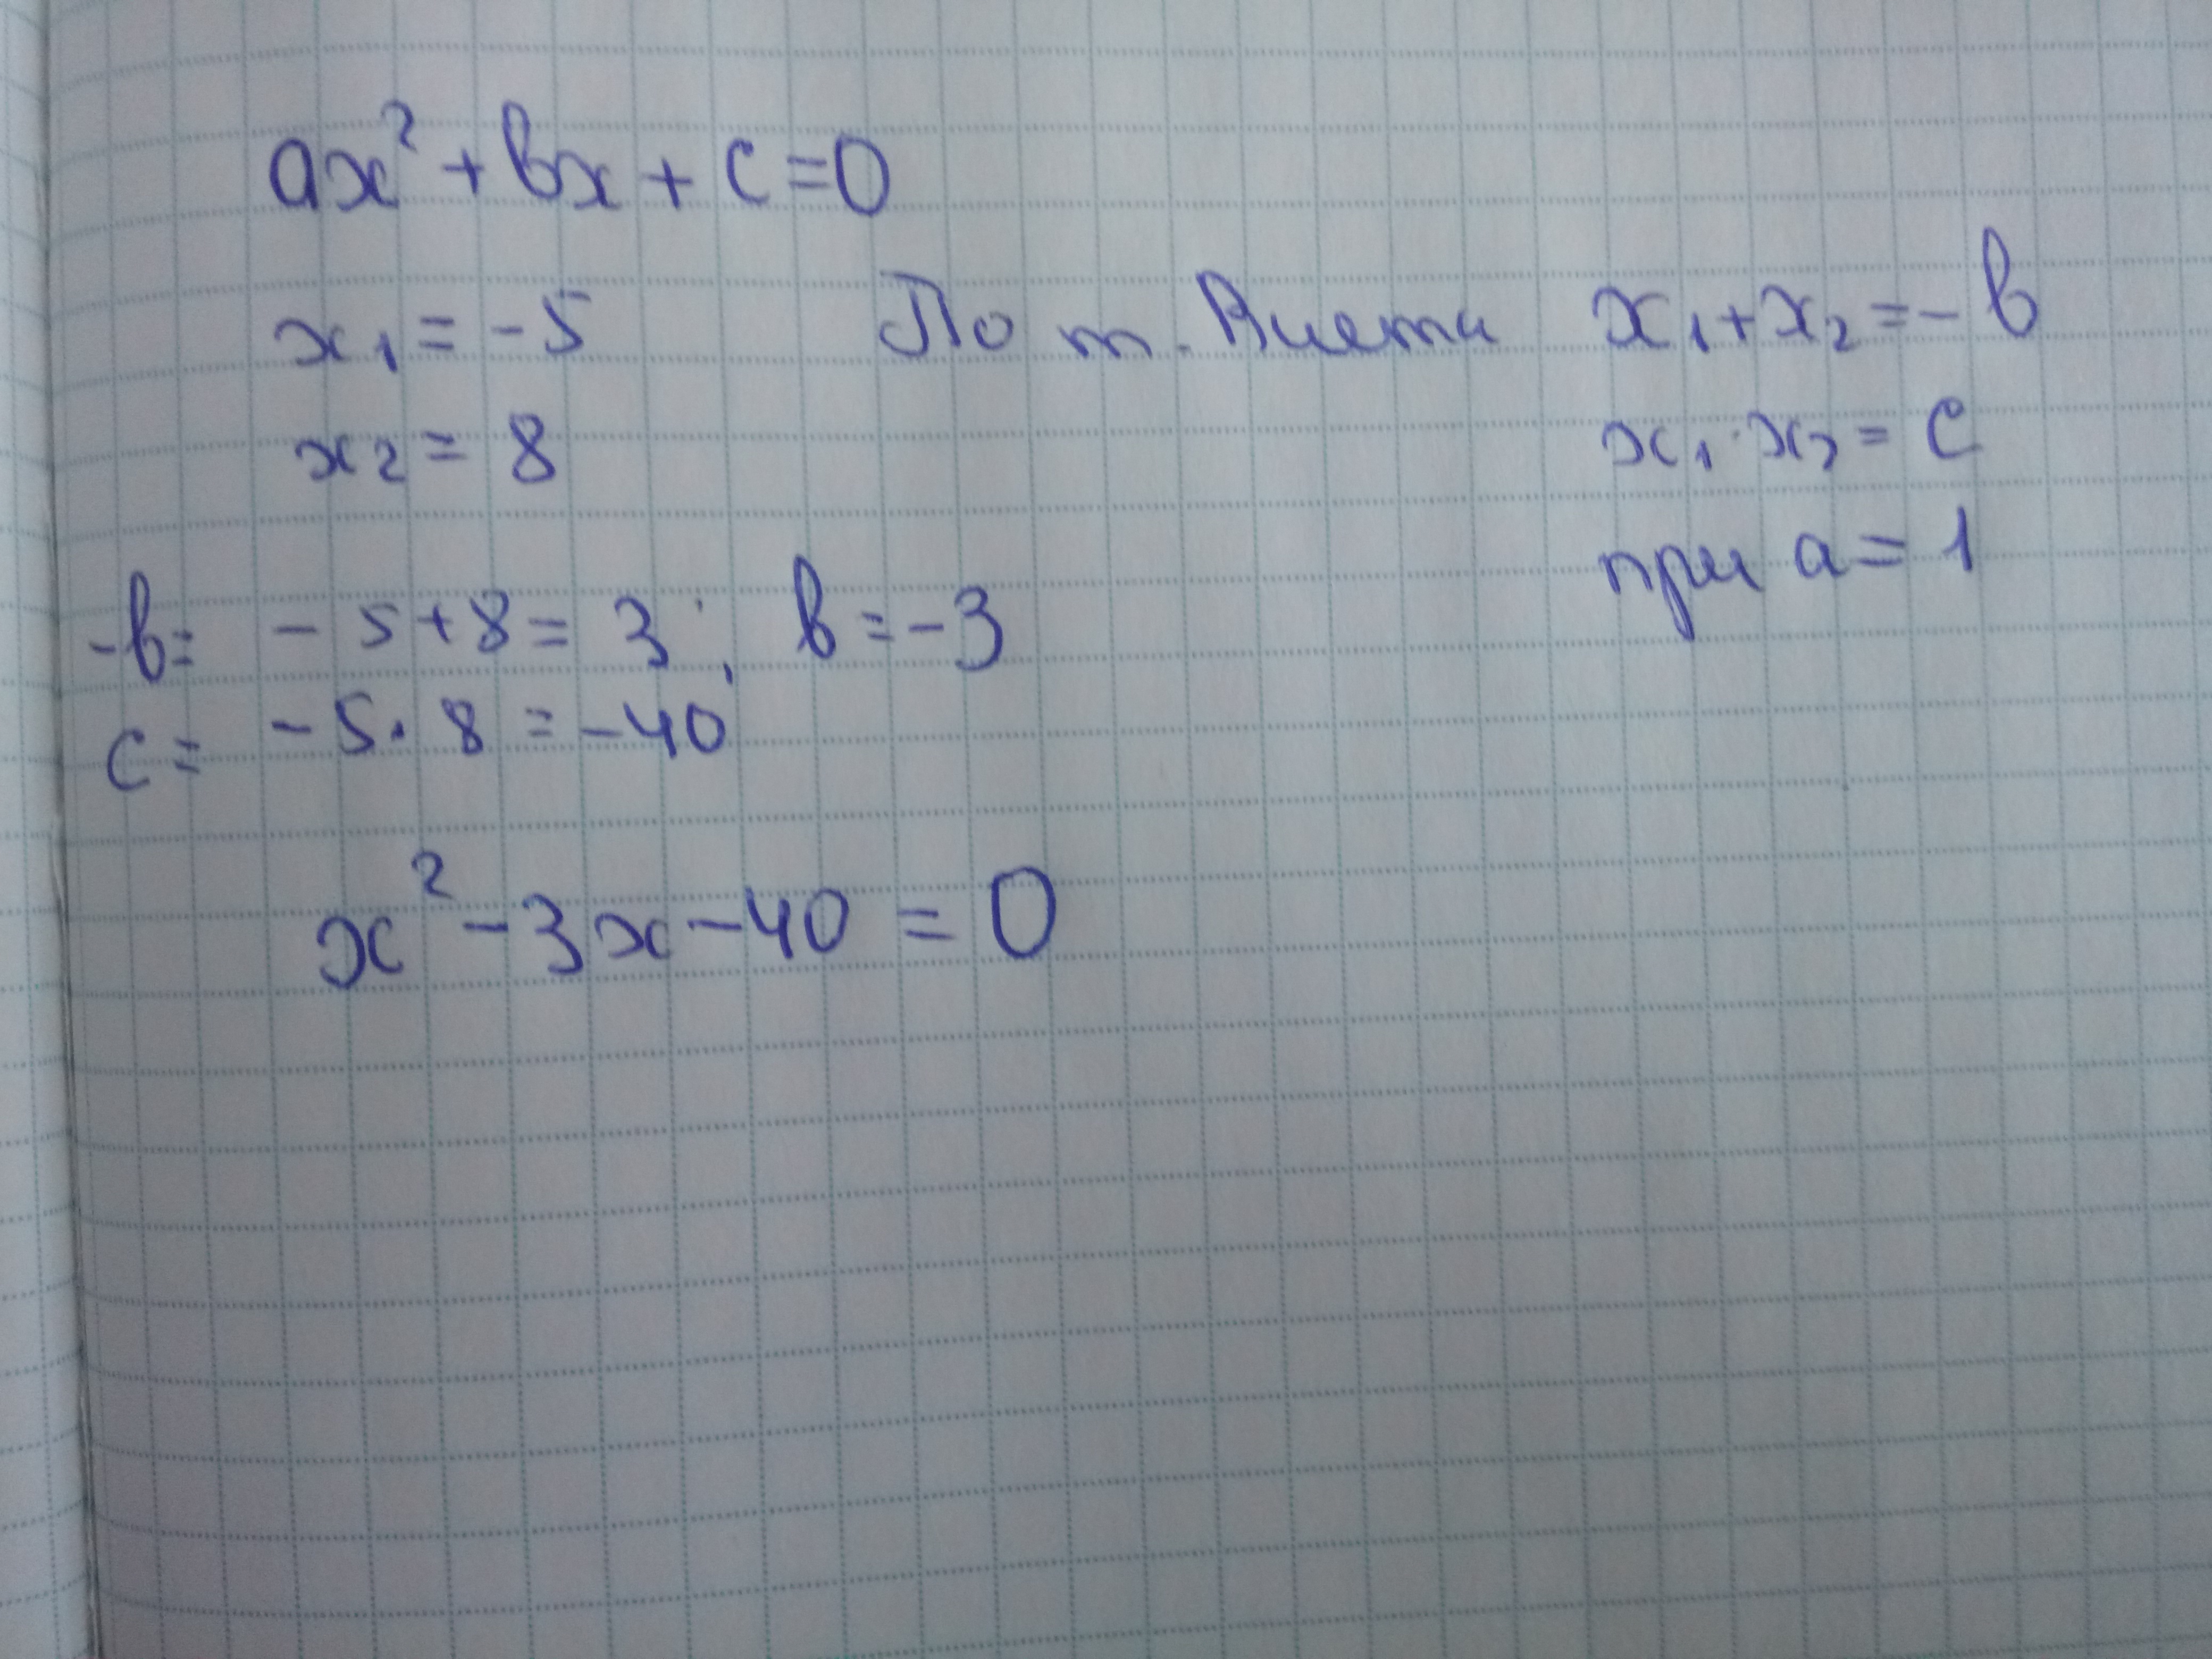 ax² + bx + c = 0
x₁ = -5 По т. Виета x₁ + x₂ = -b
x₂ = 8 x₁ · x₂ = c
при a = 1
-b = -5 + 8 = 3 ; b = -3
c = -5 · 8 = -40
x² - 3x - 40 = 0